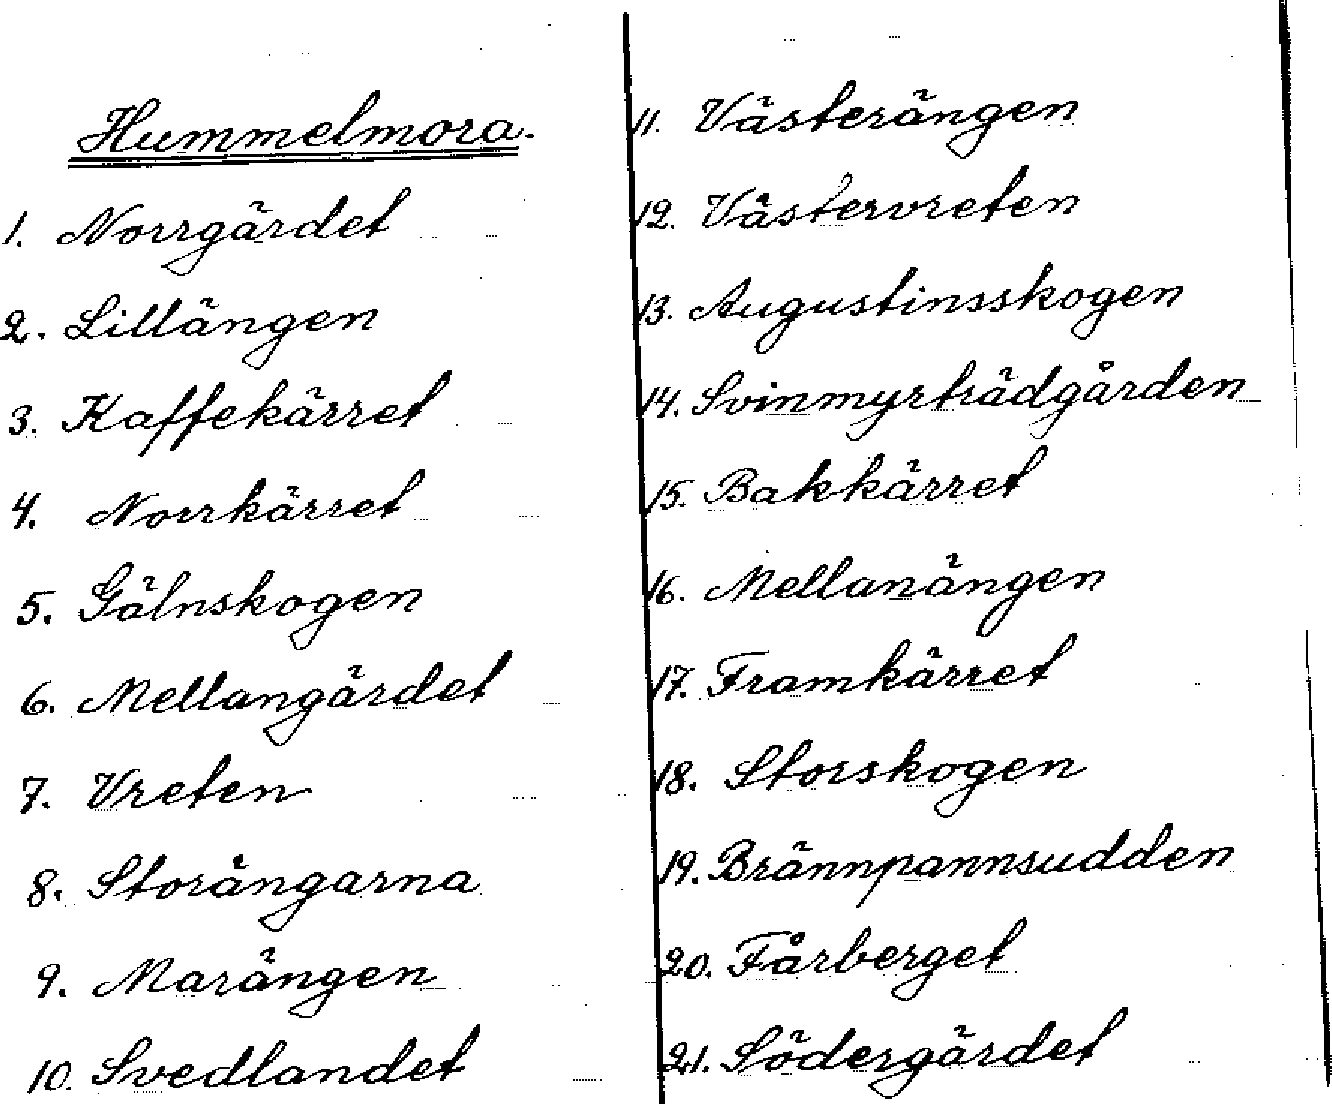 Hummelmora.
1. Norrgärdet
2. Lillängen
3. Kaffekärret
4. Norrkärret
5. Gälnskogen
6. Mellangärdet
7. Vreten
8. Storängarna
9. Marängen
10. Svedlandet
11. Västerängen
12. Västervreten
13. Augustinsskogen
14. Svinmyrträdgården
15. Bakkärret
16. Mellanängen
17. Framkärret
18. Storskogen
19. Brännpannsudden
20. Fårberget
21. Södergärdet